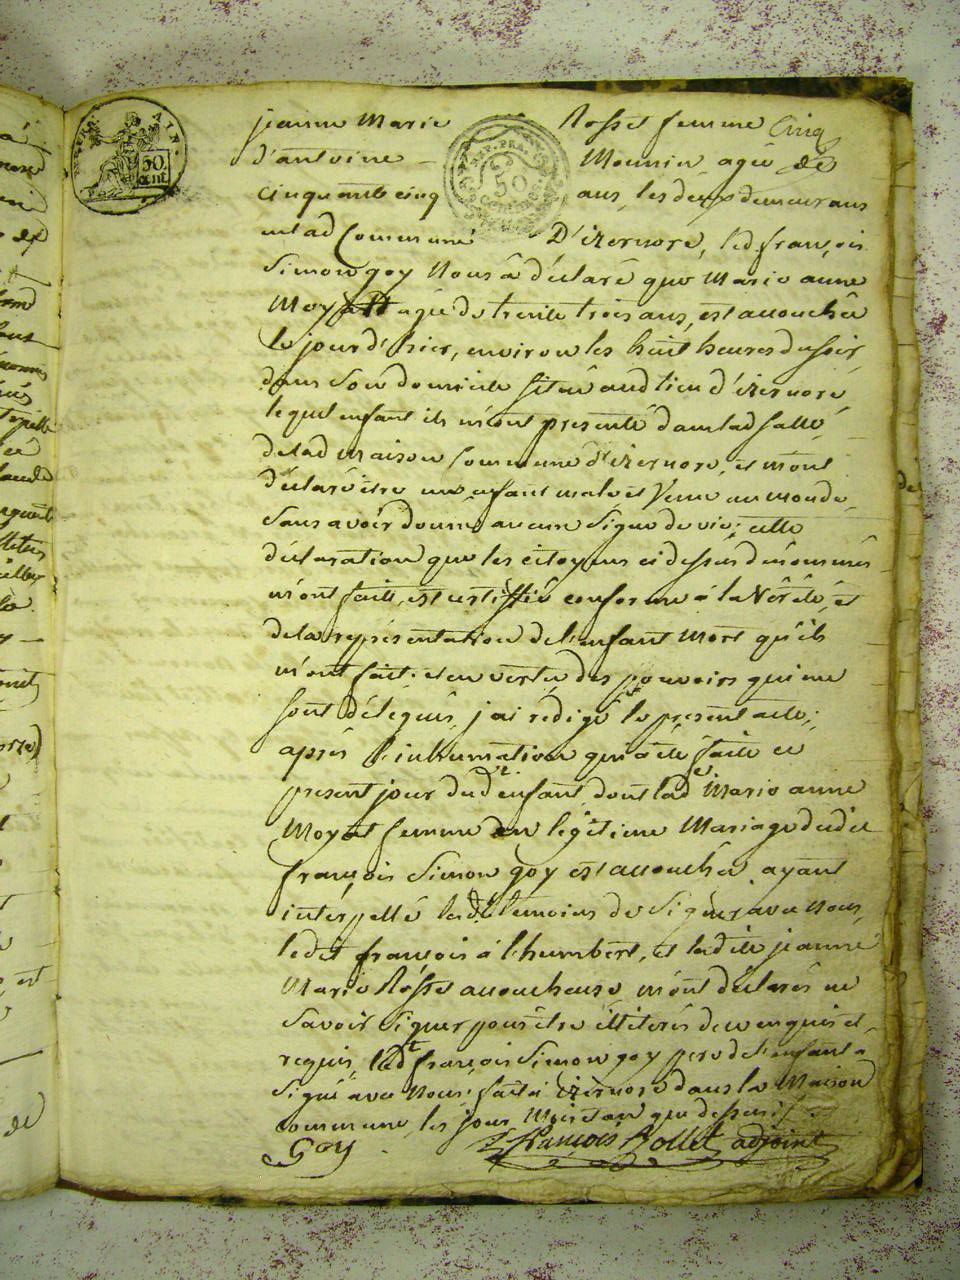 AIN.
50
cent
REP. FRA.
50
CENTIMES
jeanne Marie Rosset femme Cinq
d'antoine Mounin agée de
cinquante cinq ans, les deux demeurans
en lad Commune D'izernore, led françois
Simon goy Nous à déclaré que Marie anne
Moyatt agée de trente trois ans, est accouchée
le jour d'hier, environ les huit heures du soir,
dans son domicile situé aud lieu d'izernore,
lequel enfant ils m'ont presenté dans lad salle,
de lad maison Commune d'izernore, et m'ont
déclaré être un enfant male et Venu au monde
sans avoir donné aucun signe de vie; cette
déclaration que les citoyens ci dessus dénommés
m'ont faitte, est certiffié conforme à la Vérité, et
de la représentation de l'enfant mort qu'ils
m'ont fait: et en vertu des pouvoirs qui me
sont délegués, j'ai rédigé le present acte;
après l'inhumation qui a été faite ce
present jour dud.t enfant, dont lad.e Marie anne
Moyat femme en legitime Mariage dudit
françois Simon goy est accouchée ayant
interpellé lesd.ts temoins de Signer avec nous,
ledit françois à l'humbert, et ladite jeanne
Marie Rosset accoucheuse, m'ont déclarés ne
Savoir Signer pour être illiterés de ce enquis et
requis, led.t françois Simon goy pere de l'enfant a
Signé avec Nous, fait à izernore dans la Maison
commune, les jour, Mois et an que dessus
Goy françois Rollet adjoint
de
de